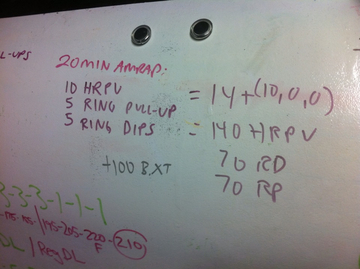 L-UPS
20MIN AMRAP:
10 HRPV = 14+(10,0,0)
5 RING PULL-UP
5 RING DIPS = 140 HRPV
+100 B.XT 70 RD
70 RP
3-3-3-1-1-1
195-205-220-210
F
DL / Reg DL